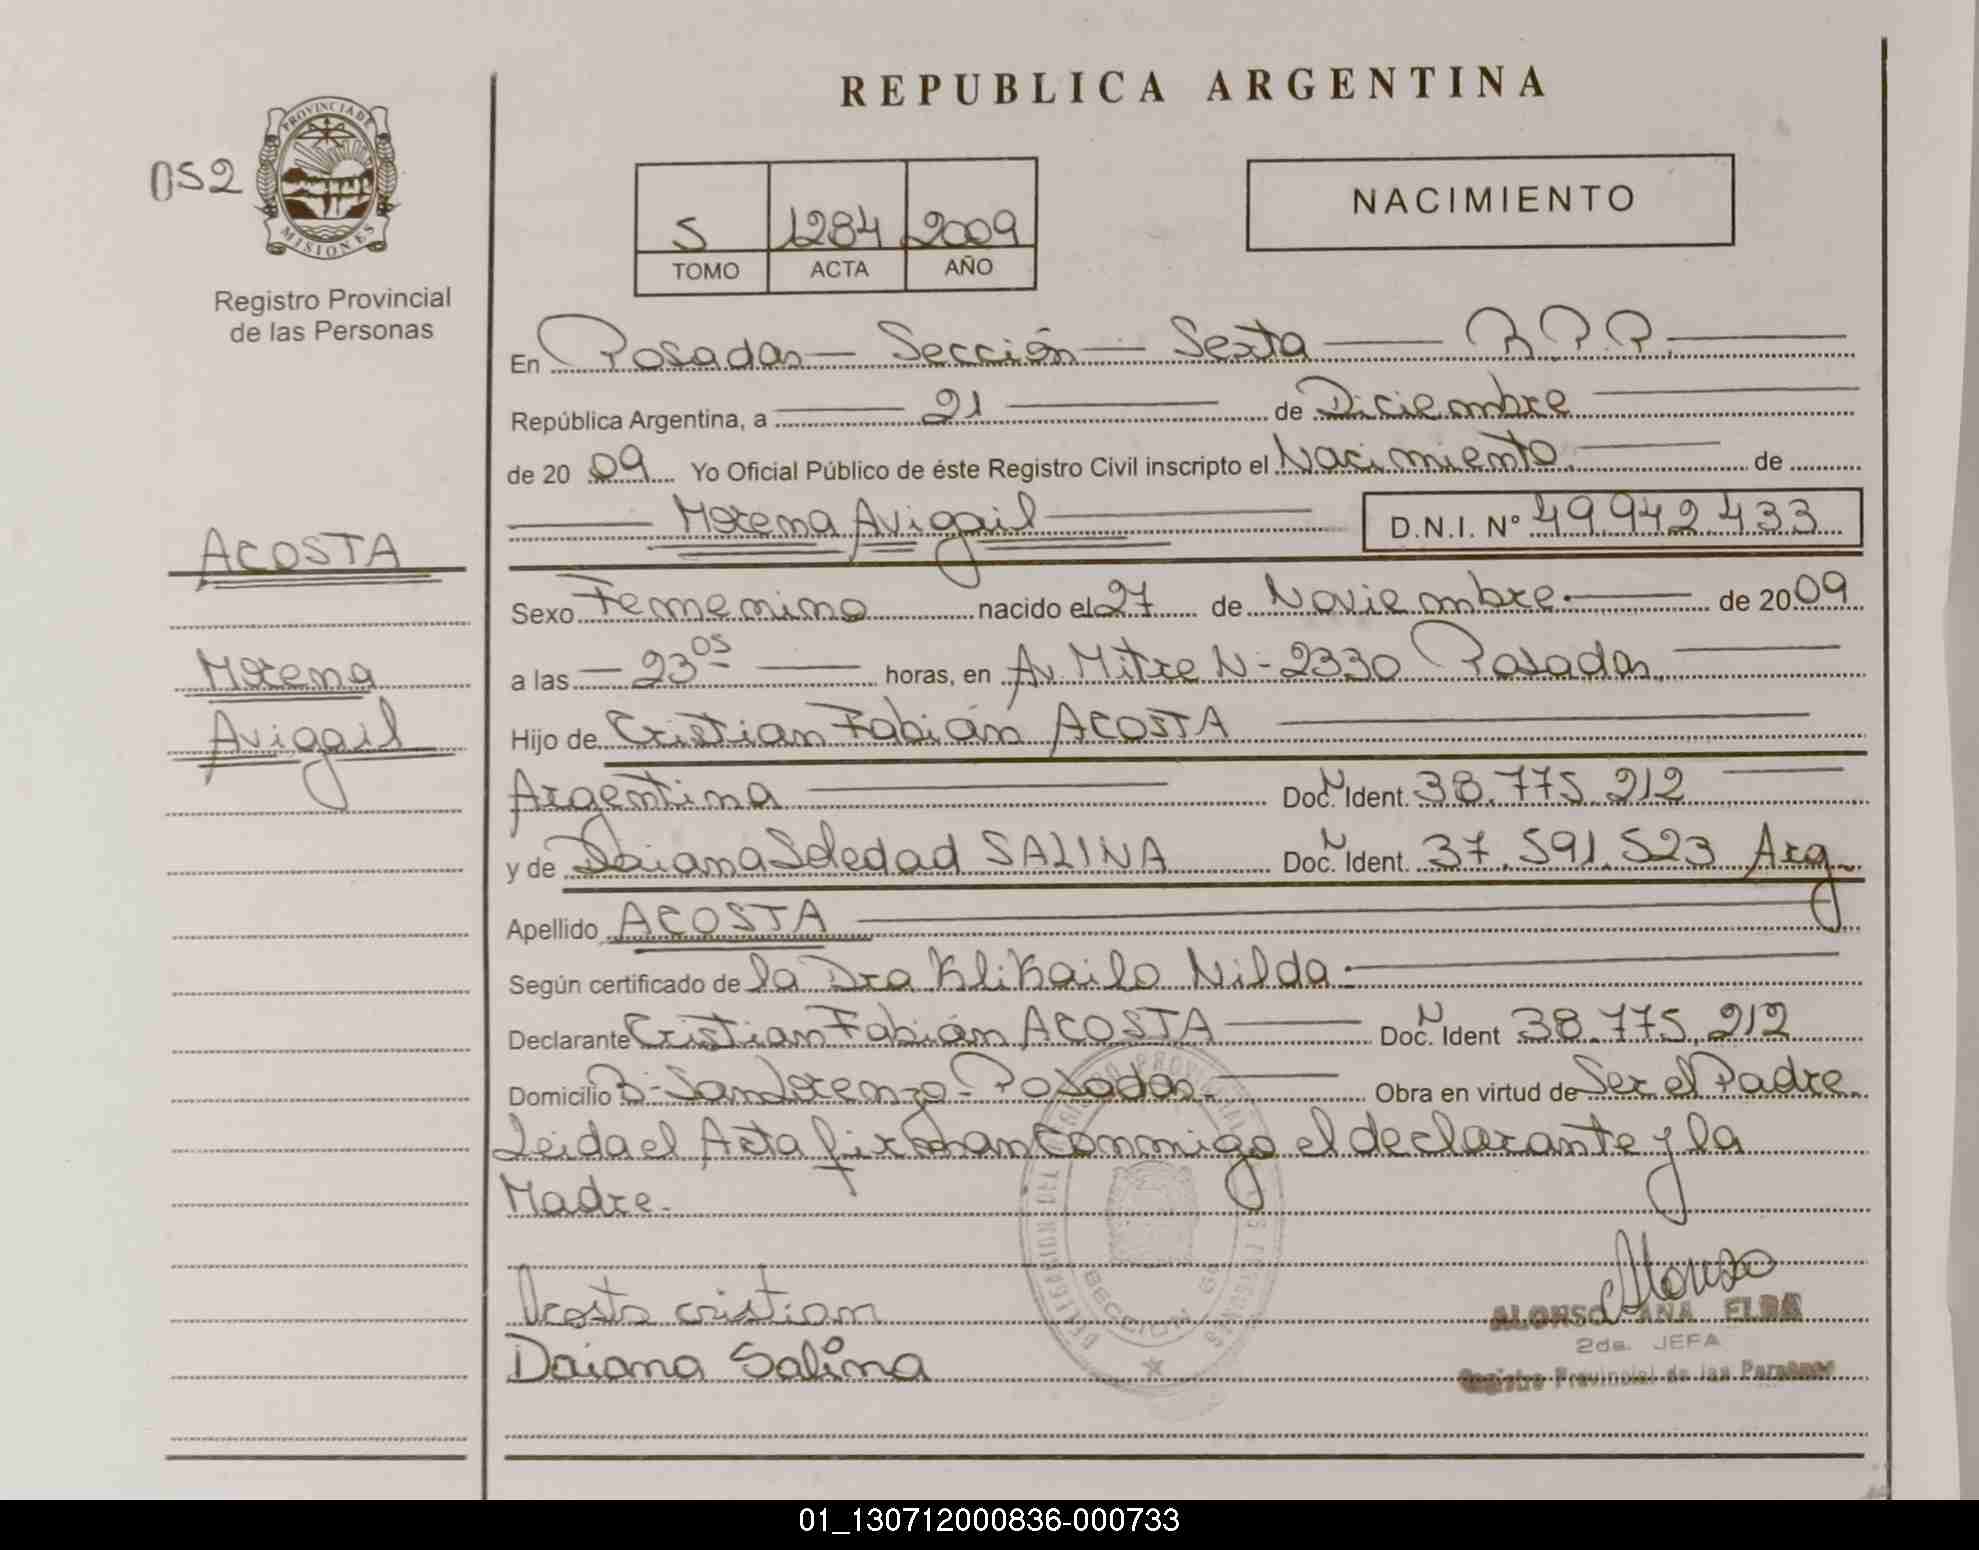 REPUBLICA ARGENTINA
PROVINCIA DE
MISIONES
052
Registro Provincial
de las Personas
S 1284 2009
TOMO ACTA AÑO
NACIMIENTO
En Posadas - Sección - Sexta - R.P.P.
República Argentina, a 21 de Diciembre
de 2009 Yo Oficial Público de éste Registro Civil inscripto el Nacimiento. de
Morena Avigail D.N.I. N° 49.942.433
ACOSTA
Morena
Avigail
Sexo Femenino nacido el 27 de Noviembre. de 2009
a las 23 05 horas, en Av. Mitre N - 2330 Posadas.
Hijo de Cristian Fabián ACOSTA
Argentina Doc. N Ident. 38.775.212
y de Daiana Soledad SALINA Doc. N Ident. 37.591.523 Arg.
Apellido ACOSTA
Según certificado de la Dra Klikailo Nilda.
Declarante Cristian Fabián ACOSTA Doc. N Ident 38.775.212
Domicilio B- San Lorenzo - Posadas. Obra en virtud de Ser el Padre.
Leida el Acta firman conmigo el declarante y la
Madre.
Acosta cristian
Daiana Salina
Alonso
ALONSO ANA ELBA
2da. JEFA
Registro Provincial de las Personas
01_130712000836-000733